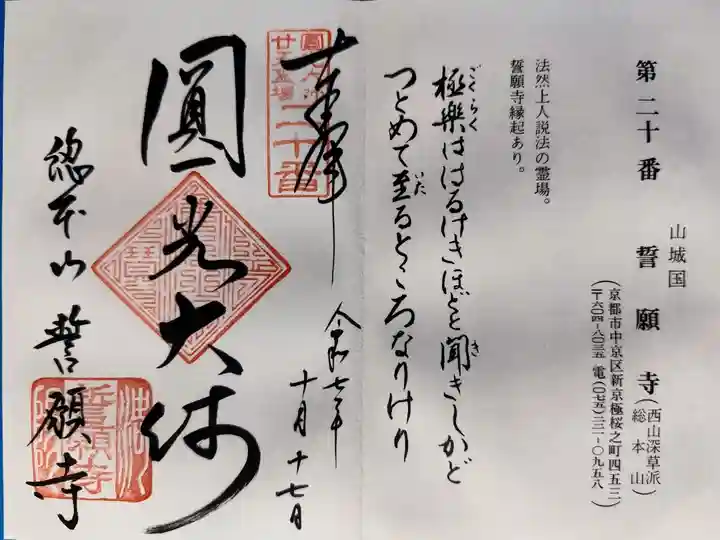 第二十番 山城国 誓願寺(西山深草派 総本山)
(京都市中京区新京極桜之町四五三
〒六〇四-八〇三五 電(〇七五)二二一-〇九五八)
法然上人説法の霊場。
誓願寺縁起あり。
極樂ははるけきほどと聞きしかど
ごくらく
き
つとめて至るところなりけり
いた
奉拝
令和七年
十月十七日
二十番
圓光大師
総本山 誓願寺
誓願寺